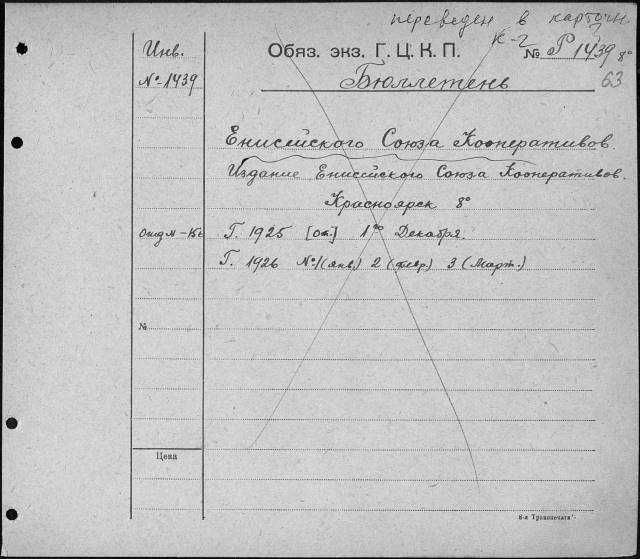 переведен в карточн.
к-2
Инв. Обяз. экз. Г. Ц. К. П. № Р 1439 8°
№-1439 Бюллетень 63
Енисейского Союза Кооперативов.
Издание Енисейского Союза Кооперативов.
Красноярск 8°
Г. 1925 [От.] 1го Декабря.
Г. 1926 №1(янв.) 2 (февр) 3 (Март.)
№
Цена